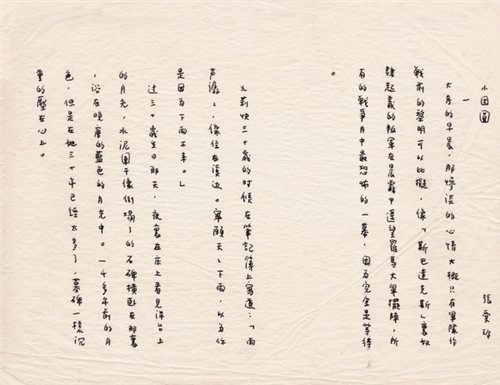 小团圓
張愛玲
一
大考的早晨，那慘淡的心情大概只有軍隊作
戰前的黎明可以比擬，像「斯巴達克斯」裏奴
隸起義的叛軍在晨霧中遙望羅馬大軍擺陣，所
有的戰爭片中最恐怖的一幕，因为完全是等待
。
九莉快三十歲的時候在筆記簿上寫道：「雨
声潺〻，像住在溪边。寧願天〻下雨，以为你
是因为下雨不來。」
过三十歲生日那天，夜裏在床上看見洋台上
的月光，水泥闌干像倒塌了的石碑橫臥在那裏
，浴在晚唐的藍色的月光中。一千多年前的月
色，但是在她三十年已經太多了，墓碑一樣沉
重的壓在心上。